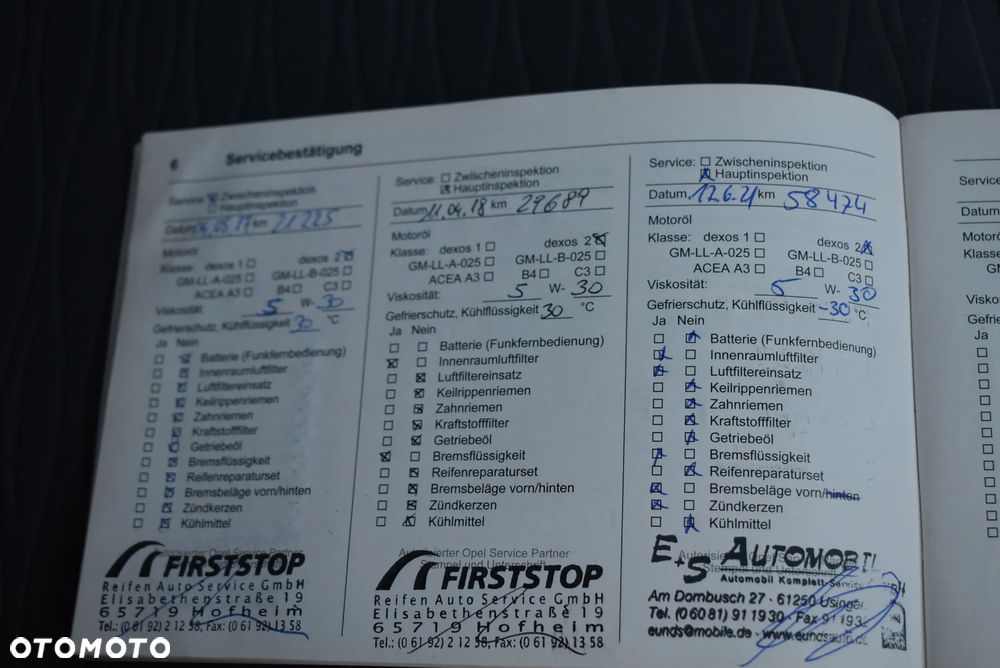 6 Servicebestätigung
Service: Zwischeninspektion
Hauptinspektion
Datum 04.05.17 km 21225
Motoröl
Klasse: dexos 1 dexos 2
GM-LL-A-025 GM-LL-B-025
ACEA A3 B4 C3
Viskosität: 5 W- 30
Gefrierschutz, Kühlflüssigkeit 30 °C
Ja Nein
Batterie (Funkfernbedienung)
Innenraumluftfilter
Luftfiltereinsatz
Keilrippenriemen
Zahnriemen
Kraftstofffilter
Getriebeöl
Bremsflüssigkeit
Reifenreparaturset
Bremsbeläge vorn/hinten
Zündkerzen
Kühlmittel
Autorisierter Opel Service Partner
FIRSTSTOP
Reifen Auto Service GmbH
Elisabethenstraße 19
65719 Hofheim
Tel.: (0 61 92) 2 12 58, Fax: (0 61 92) 13 58
Service: Zwischeninspektion
Hauptinspektion
Datum 11.04.18 km 29689
Motoröl
Klasse: dexos 1 dexos 2
GM-LL-A-025 GM-LL-B-025
ACEA A3 B4 C3
Viskosität: 5 W- 30
Gefrierschutz, Kühlflüssigkeit 30 °C
Ja Nein
Batterie (Funkfernbedienung)
Innenraumluftfilter
Luftfiltereinsatz
Keilrippenriemen
Zahnriemen
Kraftstofffilter
Getriebeöl
Bremsflüssigkeit
Reifenreparaturset
Bremsbeläge vorn/hinten
Zündkerzen
Kühlmittel
Autorisierter Opel Service Partner
Stempel und Unterschrift
FIRSTSTOP
Reifen Auto Service GmbH
Elisabethenstraße 19
65719 Hofheim
Tel.: (0 61 92) 2 12 58, Fax: (0 61 92) 13 58
Service: Zwischeninspektion
Hauptinspektion
Datum 12.6.21 km 58474
Motoröl
Klasse: dexos 1 dexos 2
GM-LL-A-025 GM-LL-B-025
ACEA A3 B4 C3
Viskosität: 5 W- 30
Gefrierschutz, Kühlflüssigkeit -30 °C
Ja Nein
Batterie (Funkfernbedienung)
Innenraumluftfilter
Luftfiltereinsatz
Keilrippenriemen
Zahnriemen
Kraftstofffilter
Getriebeöl
Bremsflüssigkeit
Reifenreparaturset
Bremsbeläge vorn/hinten
Zündkerzen
Kühlmittel
Stempel und
E+S AUTOMOBIL
Automobil Komplett-Service
Am Dornbusch 27 - 61250 Usingen
Tel. (0 60 81) 91 19 30 - Fax
eunds@mobile.de - www.eundsauto.de
Service
Datum
Ja
OTOMOTO